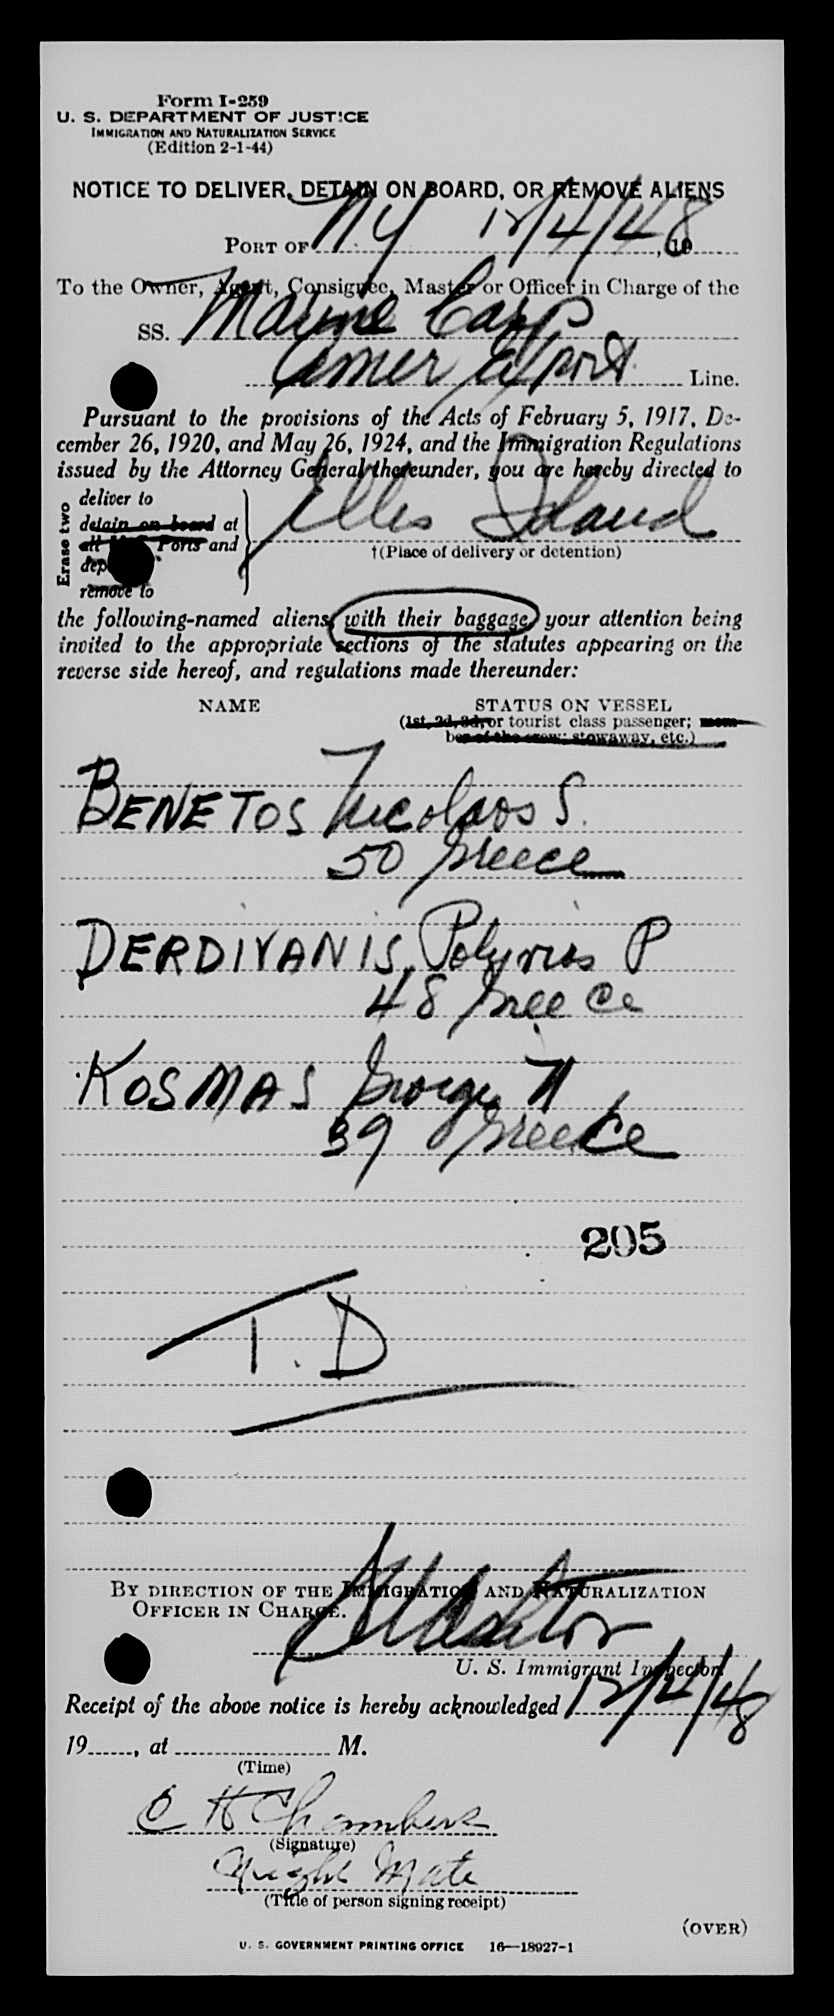 Form I-259
U. S. DEPARTMENT OF JUSTICE
IMMIGRATION AND NATURALIZATION SERVICE
(Edition 2-1-44)
NOTICE TO DELIVER, DETAIN ON BOARD, OR REMOVE ALIENS
PORT OF NY 12/4/48, 19
To the Owner, Agent, Consignee, Master or Officer in Charge of the
SS. Marine Carp
Amer Export Line.
Pursuant to the provisions of the Acts of February 5, 1917, De-
cember 26, 1920, and May 26, 1924, and the Immigration Regulations
issued by the Attorney General thereunder, you are hereby directed to
Erase two
deliver to
detain on board at
all Ports and
remove to
Ellis Island
†(Place of delivery or detention)
the following-named aliens, with their baggage, your attention being
invited to the appropriate sections of the statutes appearing on the
reverse side hereof, and regulations made thereunder:
NAME STATUS ON VESSEL
(1st, 2d, 3d, or tourist class passenger; mem-
ber of the crew; stowaway, etc.)
BENETOS Nicolaos S.
50 Greece
DERDIYANIS, P
48 Greece
KOSMAS George N
39 Greece
205
T.D
BY DIRECTION OF THE IMMIGRATION AND NATURALIZATION
OFFICER IN CHARGE.
U. S. Immigrant Inspector.
Receipt of the above notice is hereby acknowledged 12/4/48
19......, at ................ M.
(Time)
C H Chambers
(Signature)
Night Mate
(Title of person signing receipt)
(OVER)
U. S. GOVERNMENT PRINTING OFFICE 16—18927-1